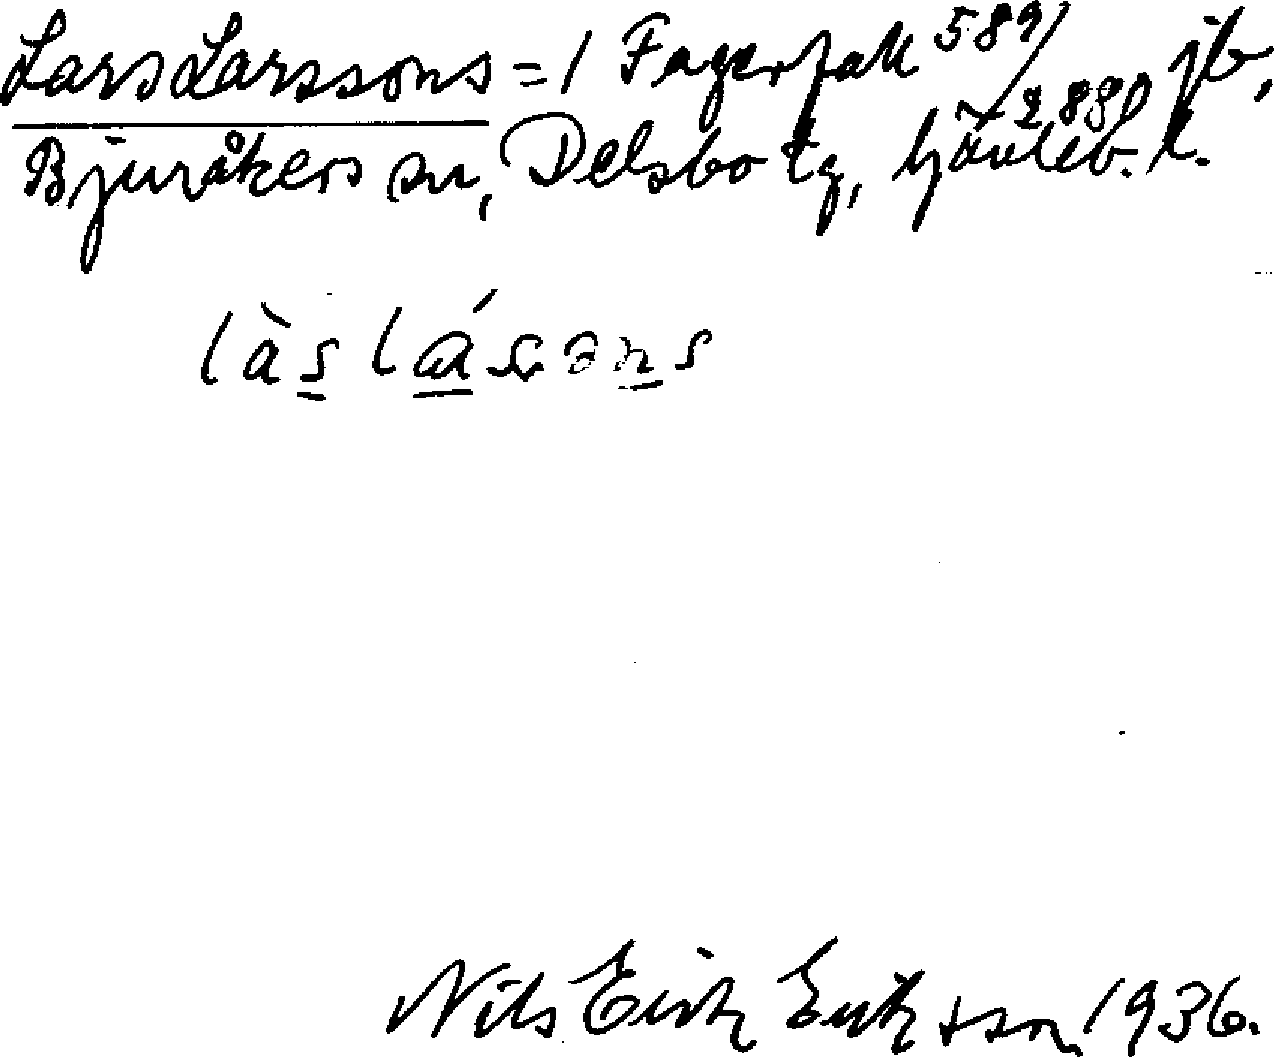 Lars Larssons = 1 Fagerfall 589/2880 jb,
Bjuråkers sn, Delsbo tg, Gävleb. l.
làs lásəns
Nils Erik Eriksson 1936.